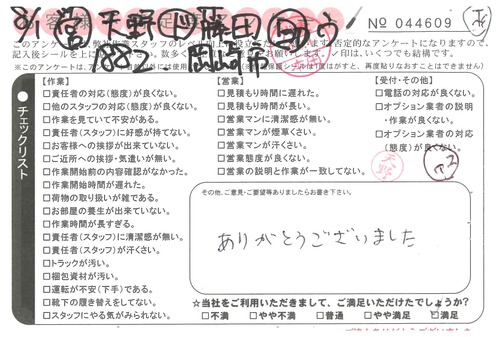 8/1 営 平野 藤田 ゆう
8823 岡崎市
No 044609
記入後シールを上に
【作業】
□責任者の対応(態度)が良くない。
□他のスタッフの対応(態度)が良くない。
□作業を見ていて不安がある。
□責任者(スタッフ)に好感が持てない。
□お客様への挨拶が出来ていない。
□ご近所への挨拶・気遣いが無い。
□作業開始前の内容確認がなかった。
□作業開始時間が遅れた。
□荷物の取り扱いが雑である。
□お部屋の養生が出来ていない。
□作業時間が長すぎる。
□責任者(スタッフ)に清潔感が無い。
□責任者(スタッフ)が汗くさい。
□トラックが汚い。
□梱包資材が汚い。
□運転が不安(下手)である。
□靴下の履き替えをしてない。
□スタッフにやる気がみられない。
【営業】
□見積もり時間に遅れた。
□見積もり時間が長い。
□営業マンに清潔感が無い。
□営業マンが煙草くさい。
□営業マンが汗くさい。
□営業態度が良くない。
□営業の説明と作業が一致してない。
【受付・その他】
□電話の対応が良くない。
□オプション業者の説明
・作業が良くない。
□オプション業者の対応
(態度)が良くない。
チェックリスト
天野
その他、ご意見・ご要望等ありましたらお書き下さい。
ありがとうございました
☆当社をご利用いただきまして、ご満足いただけたでしょうか?
□不満 □やや不満 □普通 □やや満足 □満足